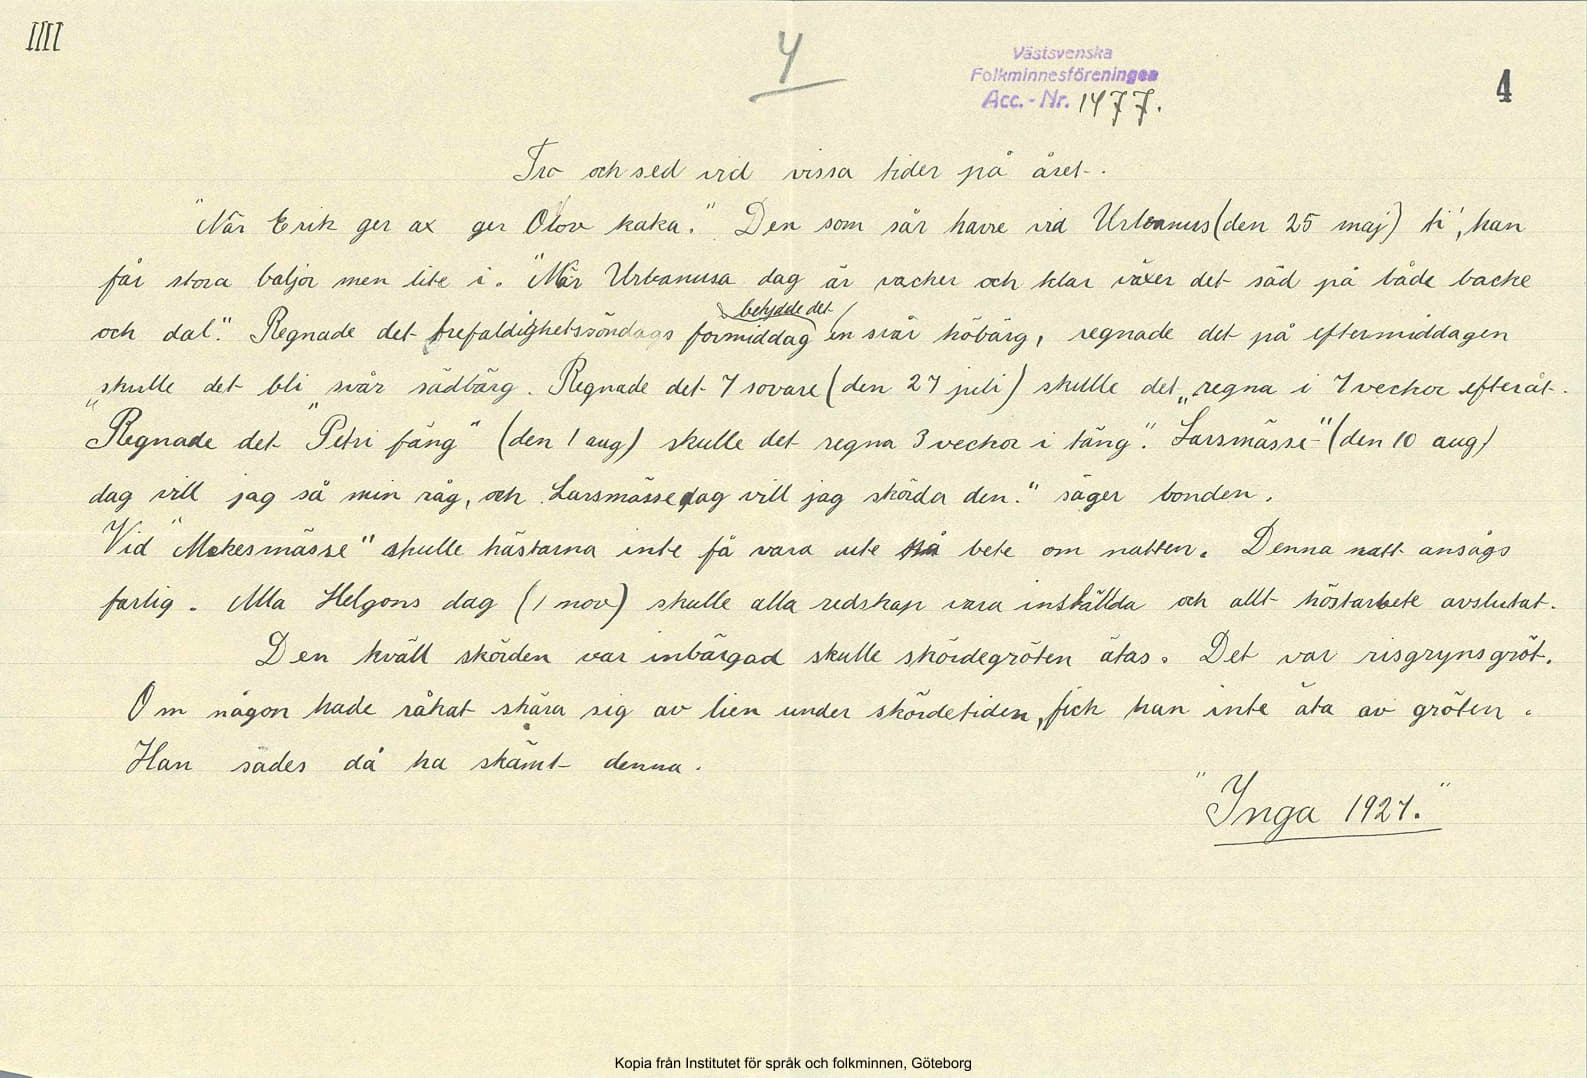 IIII
4
Västsvenska
Folkminnesföreningen
Acc.-Nr. 1477.
4
Tro och sed vid vissa tider på året.
"När Erik ger ax ger Olov kaka." Den som sår havre vid Urbanus (den 25 maj) ti', han
får stora baljor men lite i. "När Urbanusa dag är vacker och klar växer det säd på både backe
betydde det
och dal." Regnade det trefaldighetssöndags formiddag en svår höbärg, regnade det på eftermiddagen
skulle det bli svår sädbärg. Regnade det 7 sovare (den 27 juli) skulle det regna i 7 veckor efteråt.
"Regnade det "Petri fäng" (den 1 aug) skulle det regna 3 veckor i täng". "Larsmässe-" (den 10 aug)
dag vill jag så min råg, och Larsmässedag vill jag skörda den." säger bonden.
Vid "Mekesmässe" skulle hästarna inte få vara ute på bete om natten. Denna natt ansågs
farlig. Alla Helgons dag (1 nov) skulle alla redskap vara inställda och allt höstarbete avslutat.
Den kväll skörden var inbärgad skulle skördegröten ätas. Det var risgrynsgröt.
Om någon hade råkat skära sig av lien under skördetiden, fick han inte äta av gröten.
Han sades då ha skämt denna.
"Inga 1927."
Kopia från Institutet för språk och folkminnen, Göteborg